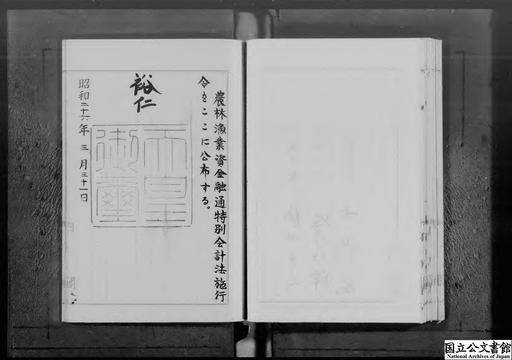 農林漁業資金融通特別会計法施行
令をここに公布する。
裕仁
天皇
御璽
昭和二十六年三月三十一日
国立公文書館
National Archives of Japan